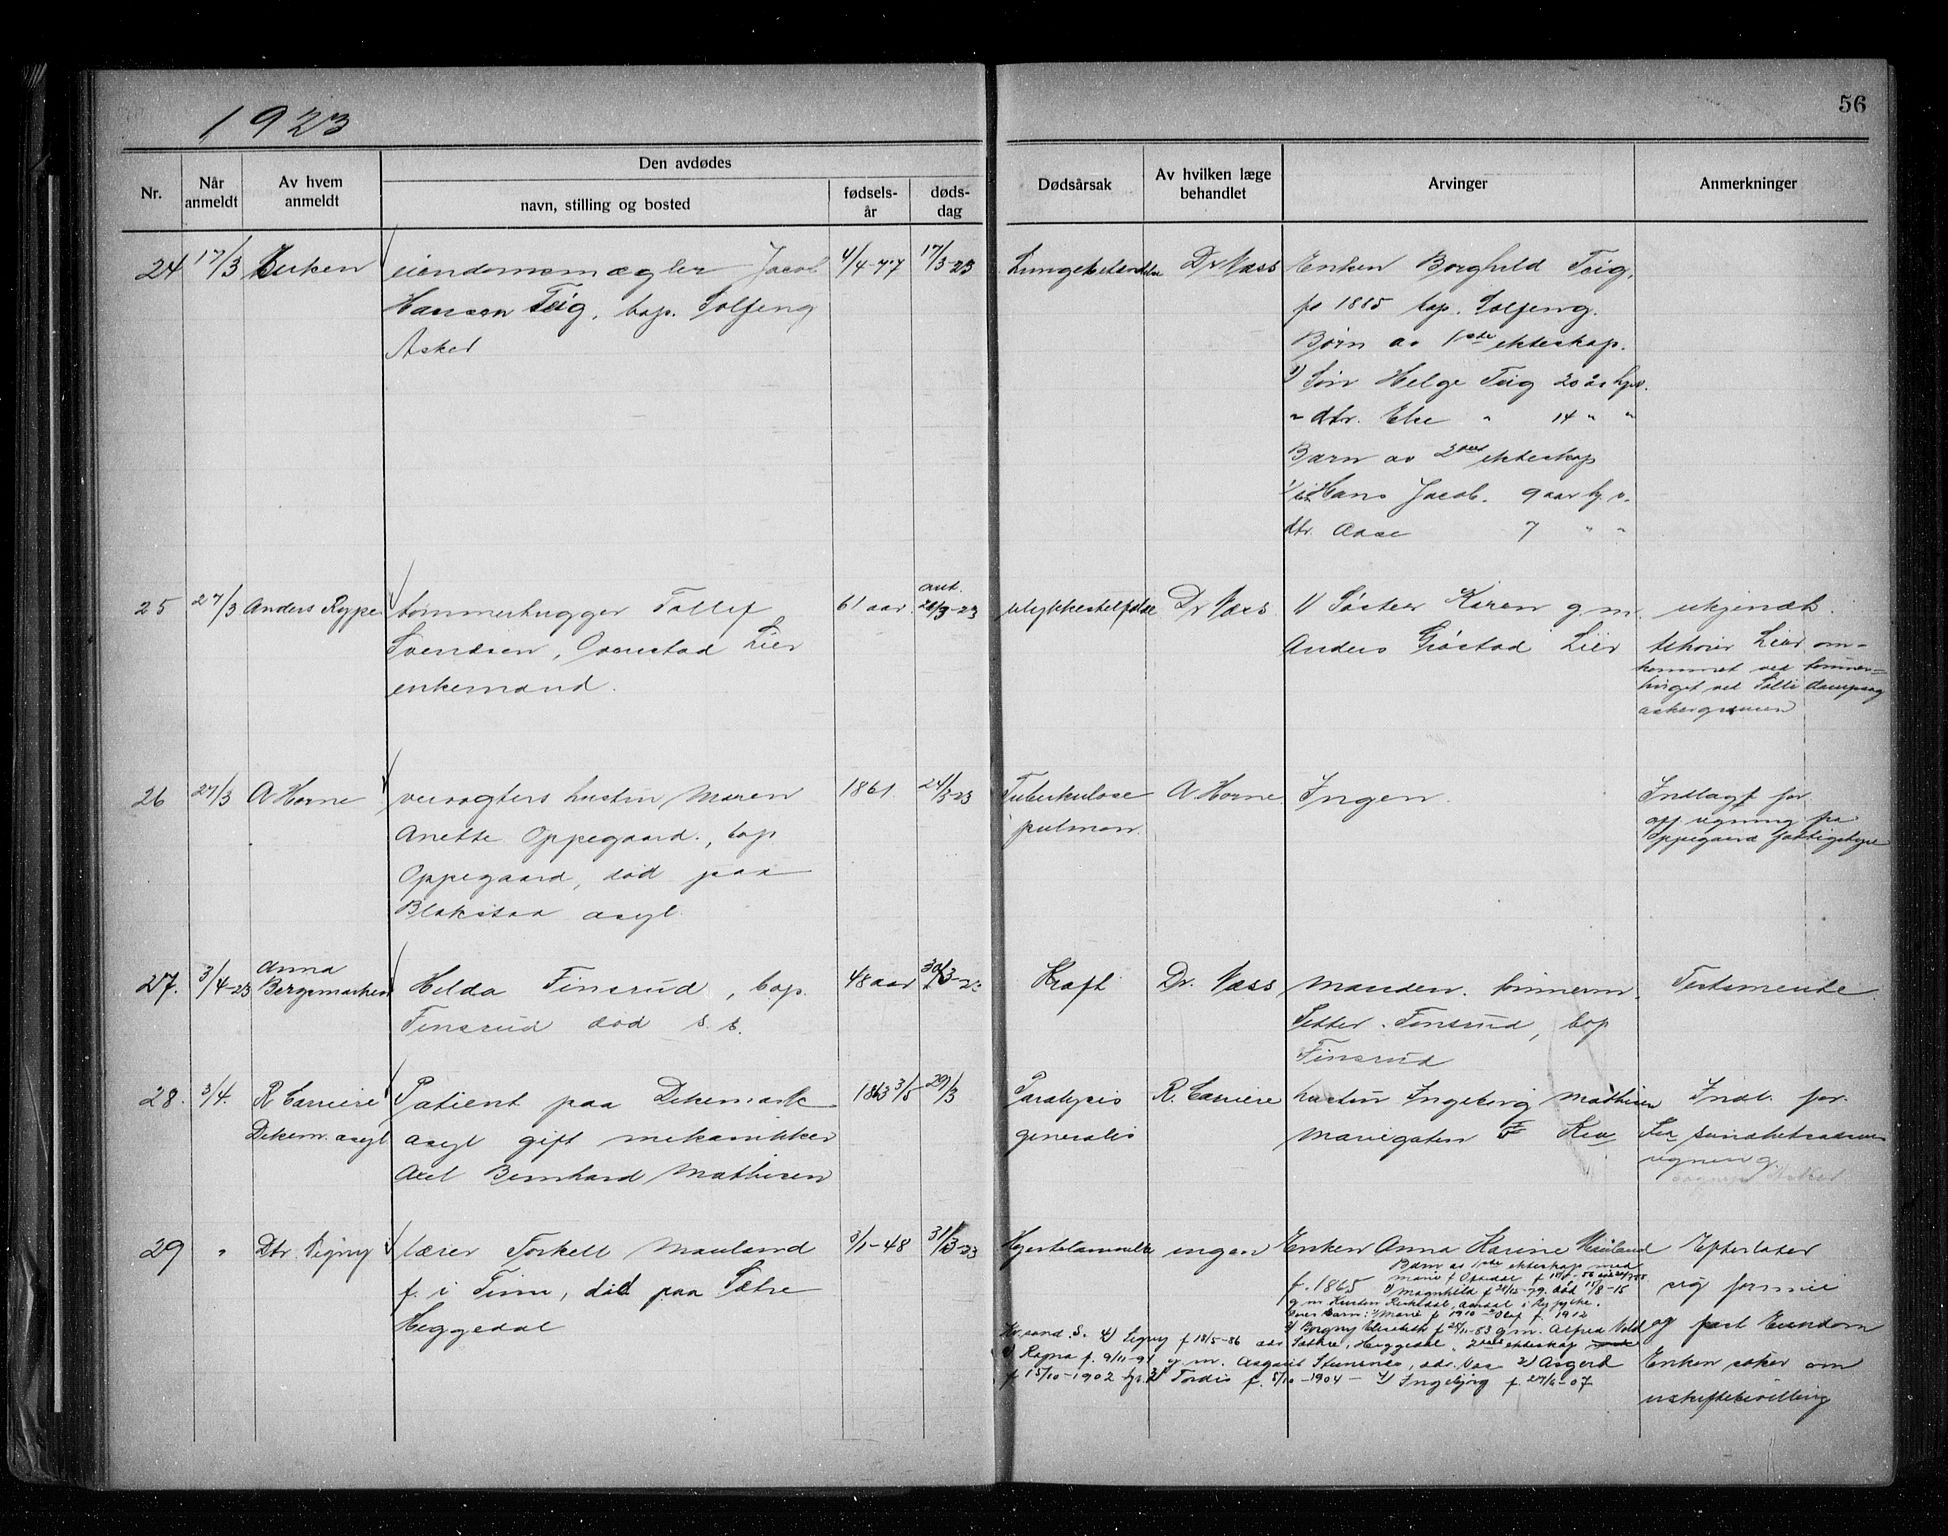 1923
56
Nr.
Når anmeldt
Av hvem anmeldt
Den avdødes
navn, stilling og bosted
fødsels-år
døds-dag
Dødsårsak
Av hvilken læge behandlet
Arvinger
Anmerkninger
24 17/3
eiendomsmægler Jacob
Hansen Teig, bop. Solfeng
Asker
4/4-77 17/3-23
Dr Næss
Enken Borghild Teig,
bop. Solfeng.
Børn av 1ste ekteskap.
1) Søn Helge Teig 20 år hjv.
" dtr. Else " 14 " "
Barn av 2det ekteskap
Hans Jacob. 9 aar hj. v.
dtr. Aase 7 " "
25 27/3 Anders Rype
tømmerhugger Tollef
Svendsen, Lier
enkemand.
61 aar. ant. 26/3-23
ulykkestilfælde
Dr Næss
1) Søster Karen g.m.
Anders Lier
ukjendt.
tilhører Lier om-
kommet ved tømmer-
ved Tolli dampsag
askergrænsen
26 27/3 A Horne
hustru Maren
Anette Oppegaard., bop
Oppegaard, død paa
Blakstad asyl.
1861. 24/3-23
Tuberkulose
pulmon.
A Horne
Ingen.
Indlagt for
Oppegaard
27. 3/4-23 Anna
Bergsmarken
Hilda Finsrud, bop.
Finsrud død s. s.
48 aar 30/3-23
Kræft
Dr. Næss
Manden. tømmerm.
Petter Finsrud, bop
Finsrud
Testamente
28. 3/4. R Carriere
Dikem. asyl
Patient paa Dikemark
asyl gift mekanikker
Axel Bernhard Mathisen
1863 3/5 29/3
Paralysis
generalis
R. Carriere
hustru Ingeborg Mathisen
Mariegaten Kra
Indl. for
ugning
29 " Dtr. Signy
lærer Torkell Mauland
f. i Time, død paa Sætre
Heggedal
3/1-48 31/3-23
Hjertelammelse
ingen
Enken Anna Karine Mauland
f. 1865
Børn av 1ste ekteskap med
1) Magnhild f 28/12-79. død 15/8-15
g m Kristen
1) Marie f 1910 - 2) Olaf f. 1912
2) Borgny Elisabeth f 25/11-83 g.m. Alfred Vold
Kr.sand S. 4) Signy f 18/5-86 adr Sætre, Heggedal. 2det ekteskap
1) Ragna f. 9/11-91 g. m. Asgaut Steinnes, adr. Vos 2) Asgerd
f 15/10-1902 3) Tordis f. 5/10-1904 - 4) Ingebjørg f. 27/6-07
Efterlater
sig formue
og fast Eiendom
Enken søker om
uskiftebevilling